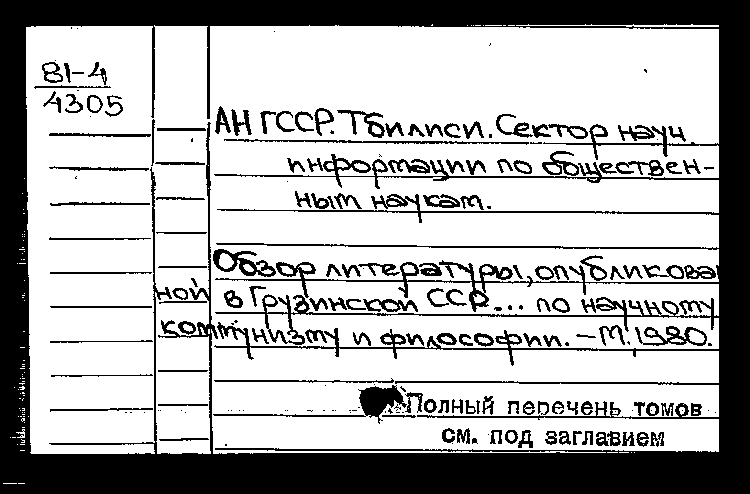 81-4
4305
АН ГССР. Тбилиси. Сектор науч.
информации по обществен-
ным наукам.
Обзор литературы, опубликован
ной в Грузинской ССР... по научному
коммунизму и философии. – М., 1980.
Полный перечень томов
см. под заглавием